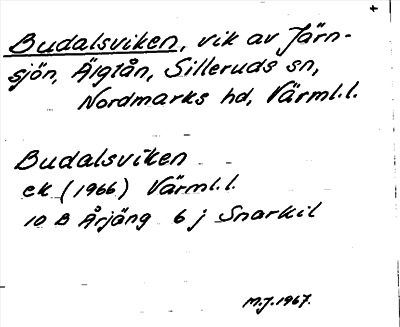 Budalsviken, vik av Järn-
sjön, Älgtån, Silleruds sn,
Nordmarks hd, Värml.l.
Budalsviken
ek (1966) Värml.l.
10 B Årjäng 6 j Snarkil
M.J.1967.